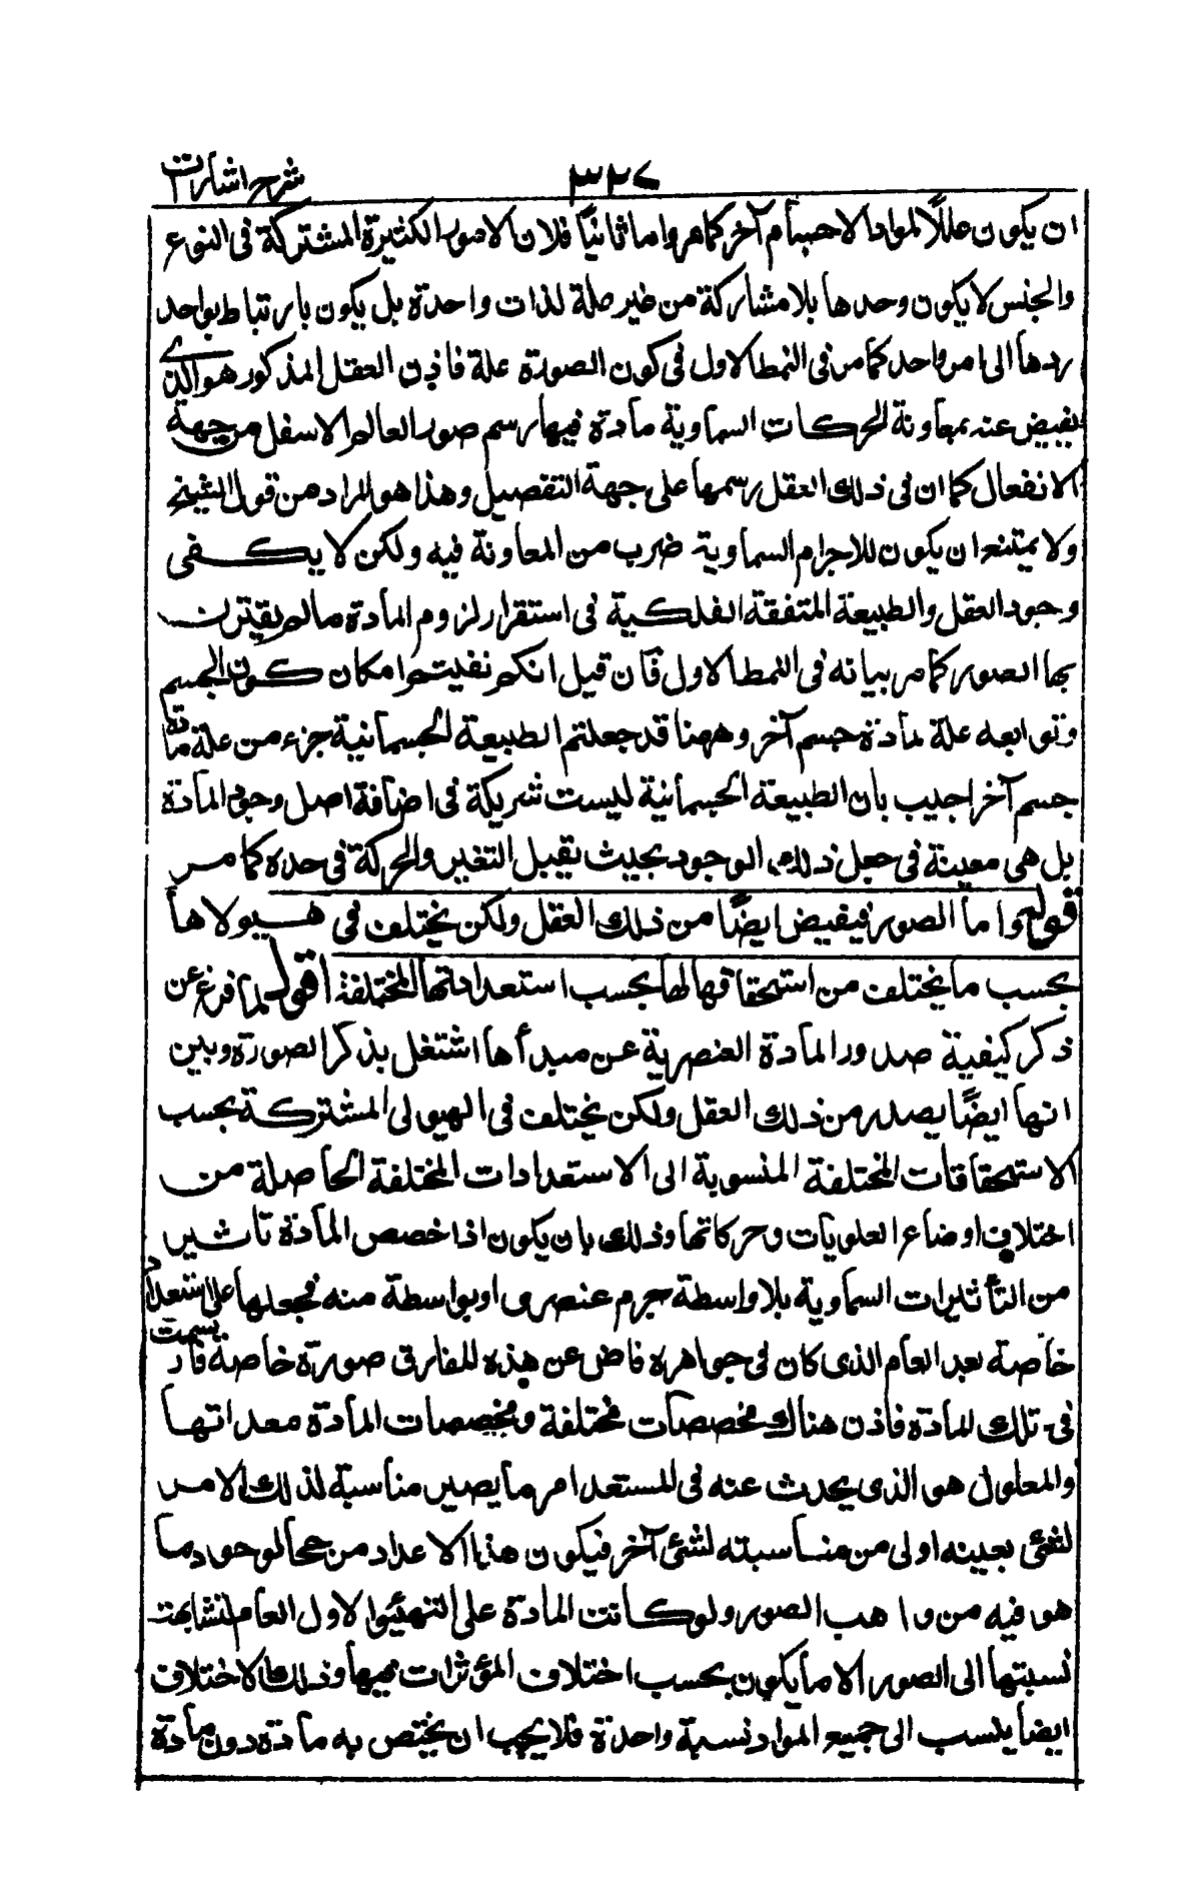 شرح اشارات ٣٢٧
ان يكون عللًا لمواد الاجسام آخر كما مر واما ثانيًا فلان الامور الكثيرة المشتركة فى النوع
والجنس لا يكون وحدها بلا مشاركة من غير علة لذات واحدة بل يكون بارتباط بواحد
يردها الى امر واحد كما مر فى النمط الاول فى كون الصورة علة فاذن العقل المذكور هو الذى
يفيض عنه بمعاونة الحركات السماوية مادة فيها رسم صور العالم الاسفل من جهة
الانفعال كما ان فى ذلك العقل رسمها على جهة التفصيل وهذا هو المراد من قول الشيخ
ولا يمتنع ان يكون للاجرام السماوية ضرب من المعاونة فيه ولكن لا يكفى
وجود العقل والطبيعة المتفقة الفلكية فى استقرار لزوم المادة ما لم يقترن
بها الصور كما مر بيانه فى النمط الاول فان قيل انكم نفيتم امكان كون الجسم
وتوابعه علة لمادة جسم آخر وههنا قد جعلتم الطبيعة الجسمانية جزء من علة مادة
جسم آخر اجيب بان الطبيعة الجسمانية ليست شريكة فى اضافة اصل وجود المادة
بل هى معينة فى جعل ذلك الوجود بحيث يقبل التغير والحركة فى حده كما مر
قوله واما الصور فيفيض ايضًا من ذلك العقل ولكن يختلف فى هيولاها
بحسب ما يختلف من استحقاقها لها بحسب استعداداتها المختلفة اقول لما فرغ عن
ذكر كيفية صدور المادة العنصرية عن مبدأها اشتغل بذكر الصورة وبين
انها ايضًا يصدر من ذلك العقل ولكن يختلف فى الهيولى المشتركة بحسب
الاستحقاقات المختلفة المنسوبة الى الاستعدادات المختلفة الحاصلة من
اختلاف اوضاع العلويات وحركاتها وذلك بان يكون اذا خصص المادة تاثير
من التأثيرات السماوية بلا واسطة جرم عنصرى او بواسطة منه فجعلها على استعداد
خاصة بعد العام الذى كان فى جواهره فاض عن هذه المفارق صورة خاصة فارتسمت
فى تلك المادة فاذن هناك مخصصات مختلفة ومخصصات المادة معداتها
والمعلول هو الذى يحدث عنه فى المستعد امر ما يصير مناسبة لذلك الامر
لشئ بعينه اولى من مناسبته لشئ آخر فيكون هذا الاعداد مرجحا لوجود ما
هو فيه من واهب الصور ولو كانت المادة على التهيئو الاول العام لتشابهت
نسبتها الى الصور الا ما يكون بحسب اختلاف المؤثرات فيها وذلك الاختلاف
ايضا ينسب الى جميع المواد نسبة واحدة فلا يجب ان يختص به مادة دون مادة